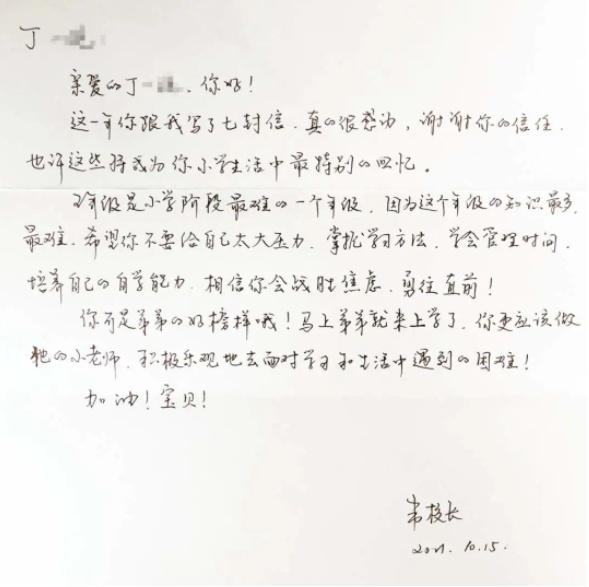 丁一
亲爱的丁一、你好！
这一年你跟我写了七封信．真的很感动，谢谢你的信任．
也许这些将成为你小学生活中最特别的回忆。
年级是小学阶段最难的一个年级．因为这个年级的知识最多
最难．希望你不要给自己太大压力．掌握学习方法．学会管理时间．
培养自己的自学能力．相信你会战胜焦虑．勇往直前！
你可是弟弟的好榜样哦！马上弟弟就来上学了．你更应该做
他的小老师．积极乐观地去面对学习和生活中遇到的困难！
加油！宝贝！
校长
2021．10.15．